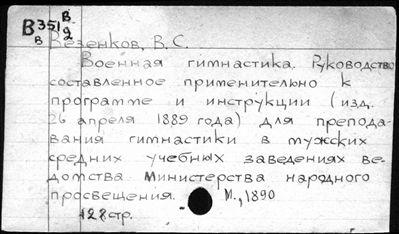 В 351/2 В.
в
Везенков, В. С.
Военная гимнастика. Руководство
составленное применительно к
программе и инструкции (изд.
26 апреля 1889 года) для препода-
вания гимнастики в мужских
средних учебных заведениях ве-
домства Министерства народного
просвещения. М., 1890
128 стр.